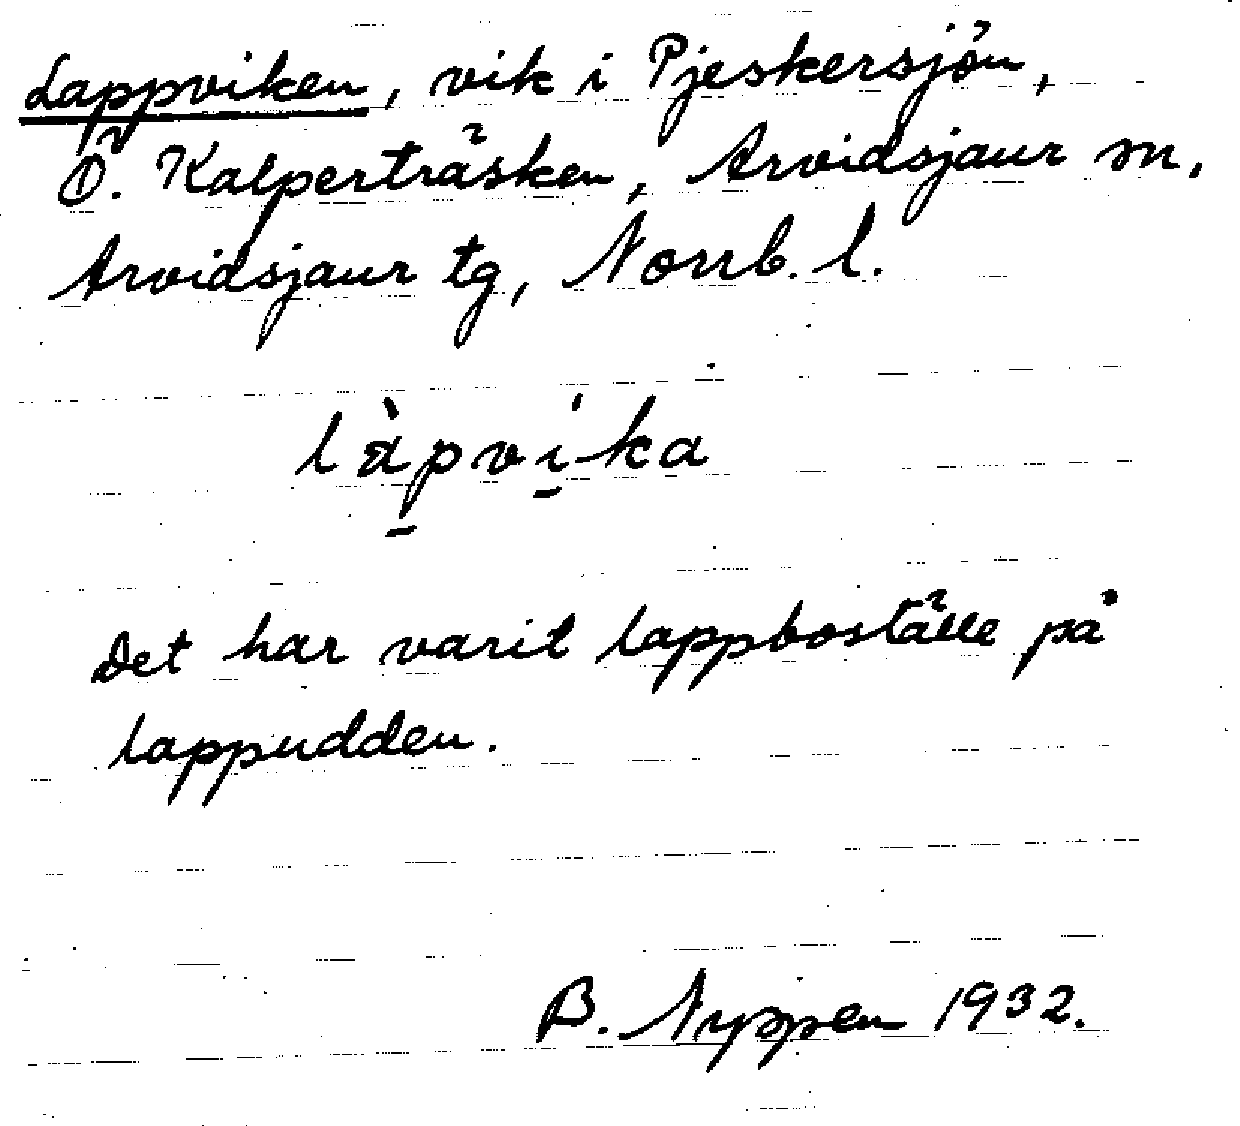 Lappviken, vik i Pjeskersjön,
Ö. Kalperträsken, Arvidsjaur sn,
Arvidsjaur tg, Norrb. l.
l̀àpvi̱ka
Det har varit lappboställe på
lappudden.
B. Nyppen 1932.